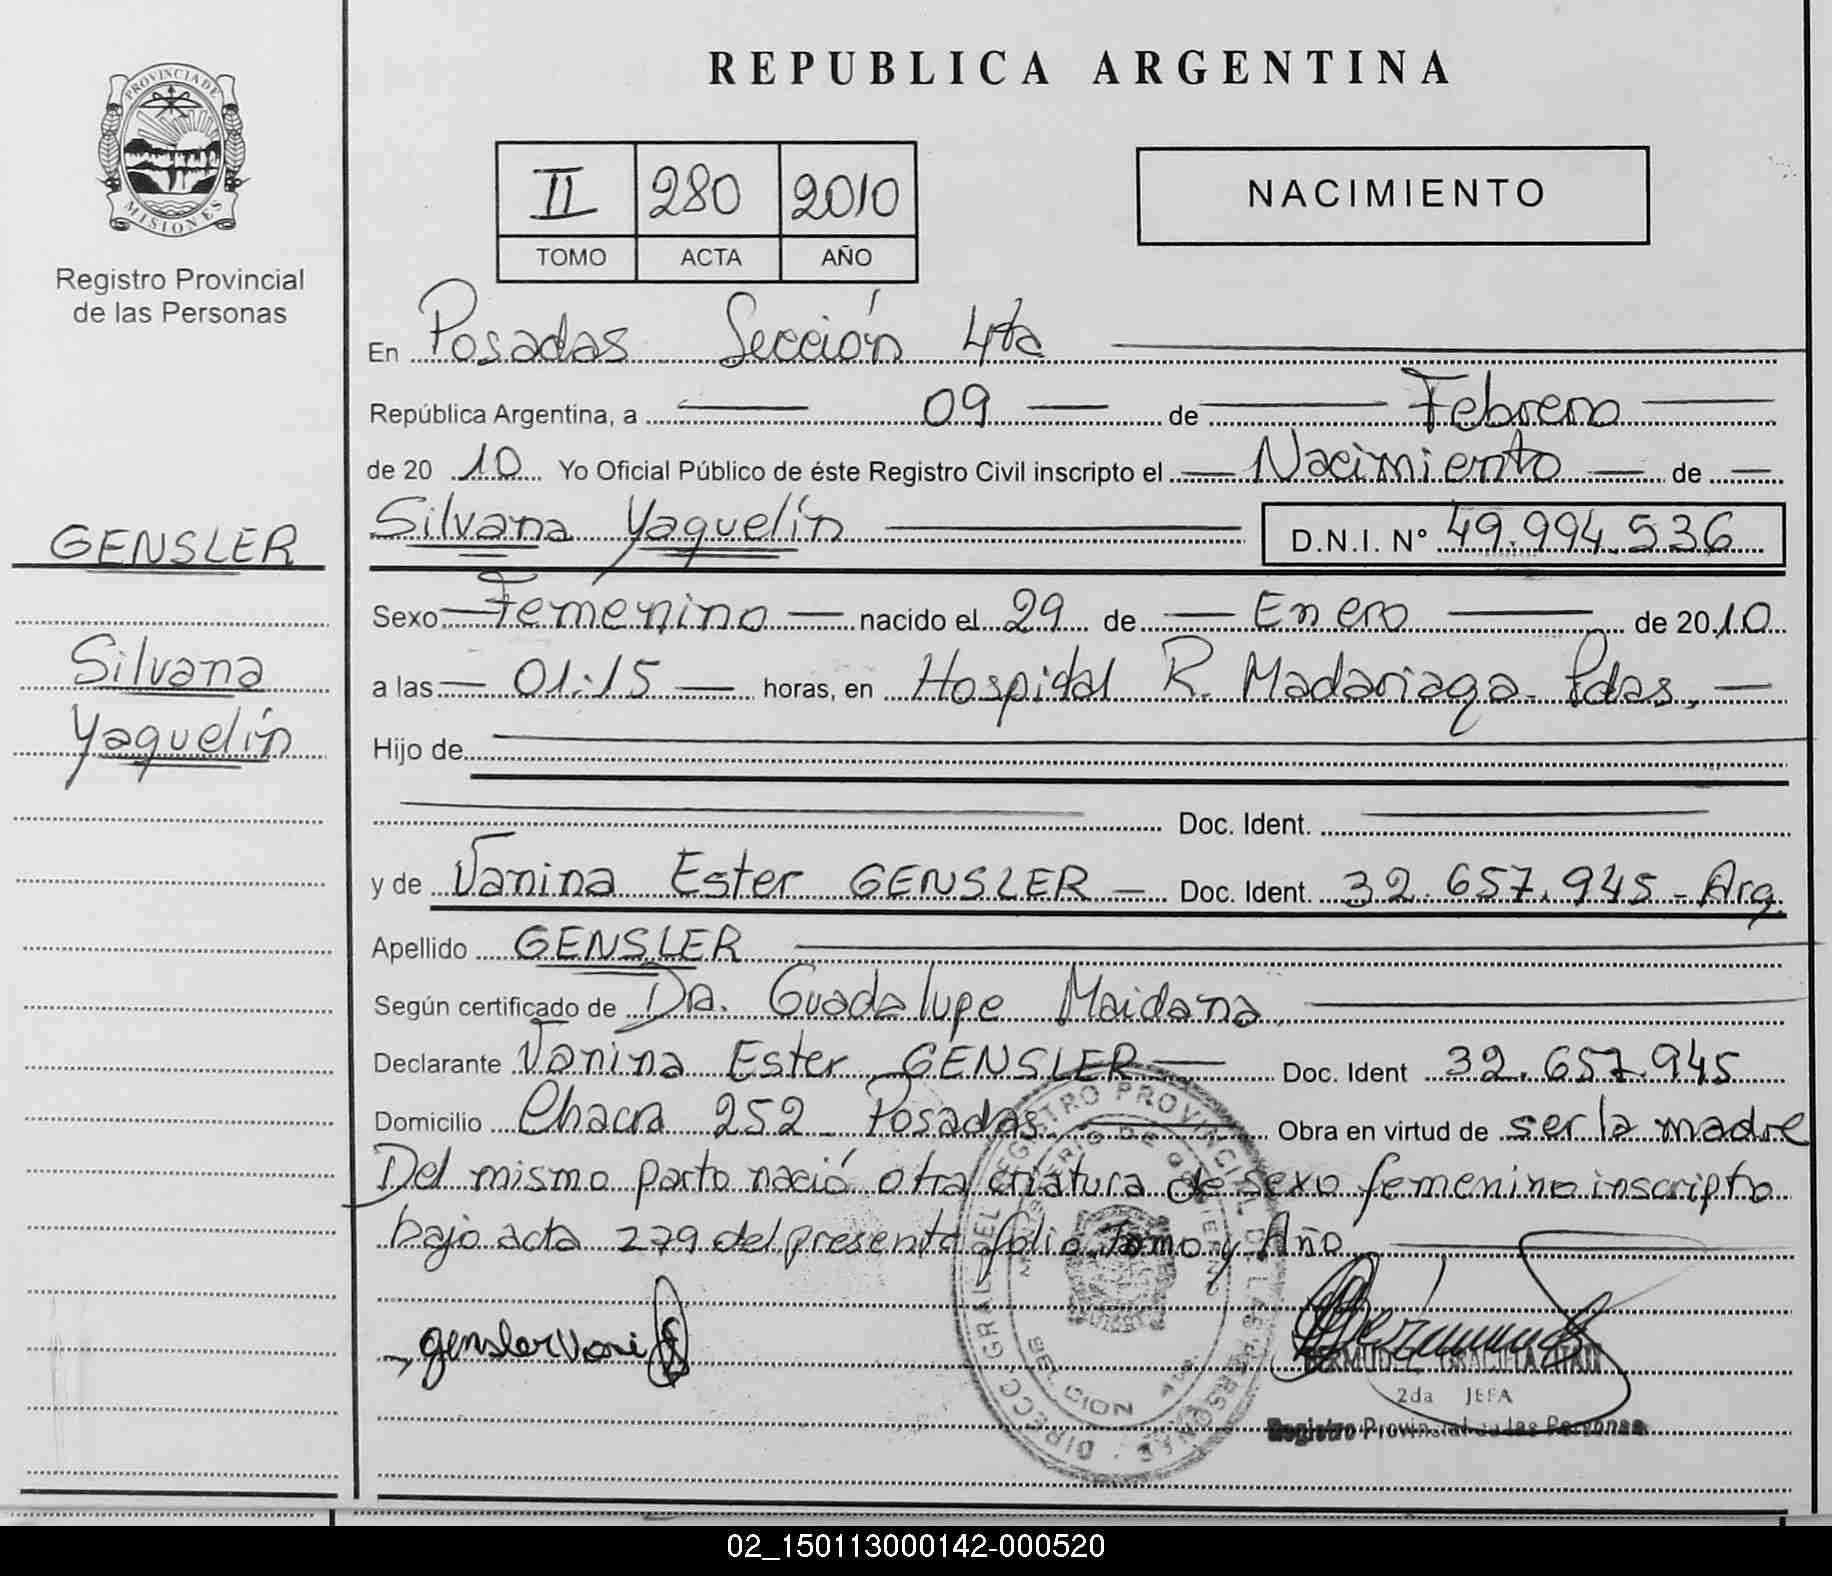 PROVINCIA DE
MISIONES
Registro Provincial
de las Personas
GENSLER
Silvana
Yaquelín
REPUBLICA ARGENTINA
II 280 2010
TOMO ACTA AÑO
NACIMIENTO
En Posadas Sección 4ta
República Argentina, a 09 de Febrero
de 20 10 Yo Oficial Público de éste Registro Civil inscripto el Nacimiento de
Silvana Yaquelín D.N.I. N° 49.994.536
Sexo Femenino nacido el 29 de Enero de 20 10
a las 01:15 horas, en Hospital R. Madariaga - Pdas.
Hijo de
Doc. Ident.
y de Vanina Ester GENSLER Doc. Ident. 32.657.945 - Arg.
Apellido GENSLER
Según certificado de Dra. Guadalupe Maidana
Declarante Vanina Ester GENSLER Doc. Ident 32.657.945
Domicilio Chacra 252 Posadas Obra en virtud de ser la madre
Del mismo parto nació otra criatura de sexo femenino inscripto
bajo acta 279 del presente folio, Tomo y Año
DIRECC. GRAL. DEL REGISTRO PROVINCIAL DE LAS PERSONAS
MINISTERIO DE GOBIERNO
gensler vani
2da JEFA
Registro Provincial de las Personas
02_150113000142-000520